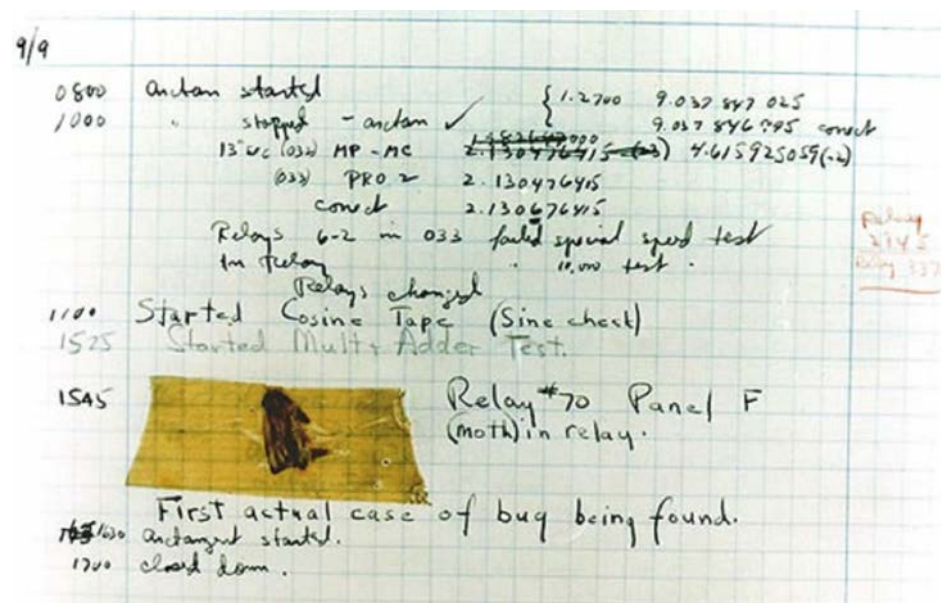 9/9
0800 antan started { 1.2700 9.037 847 025
1000 " stopped - antan ✓ 9.037 846 995 conect
13"uc (032) MP - MC 2.130476415 (-3) 4.615925059(-2)
(033) PRO 2 2.130476415
conect 2.130676415
Relays 6-2 in 033 failed special speed test
In Relay " 10.000 test .
Relays changed
Relay
2145
Relay 337
1100 Started Cosine Tape (Sine check)
1525 Started Mult + Adder Test.
1545 Relay #70 Panel F
(moth) in relay.
First actual case of bug being found.
1630 antangent started.
1700 closed down.